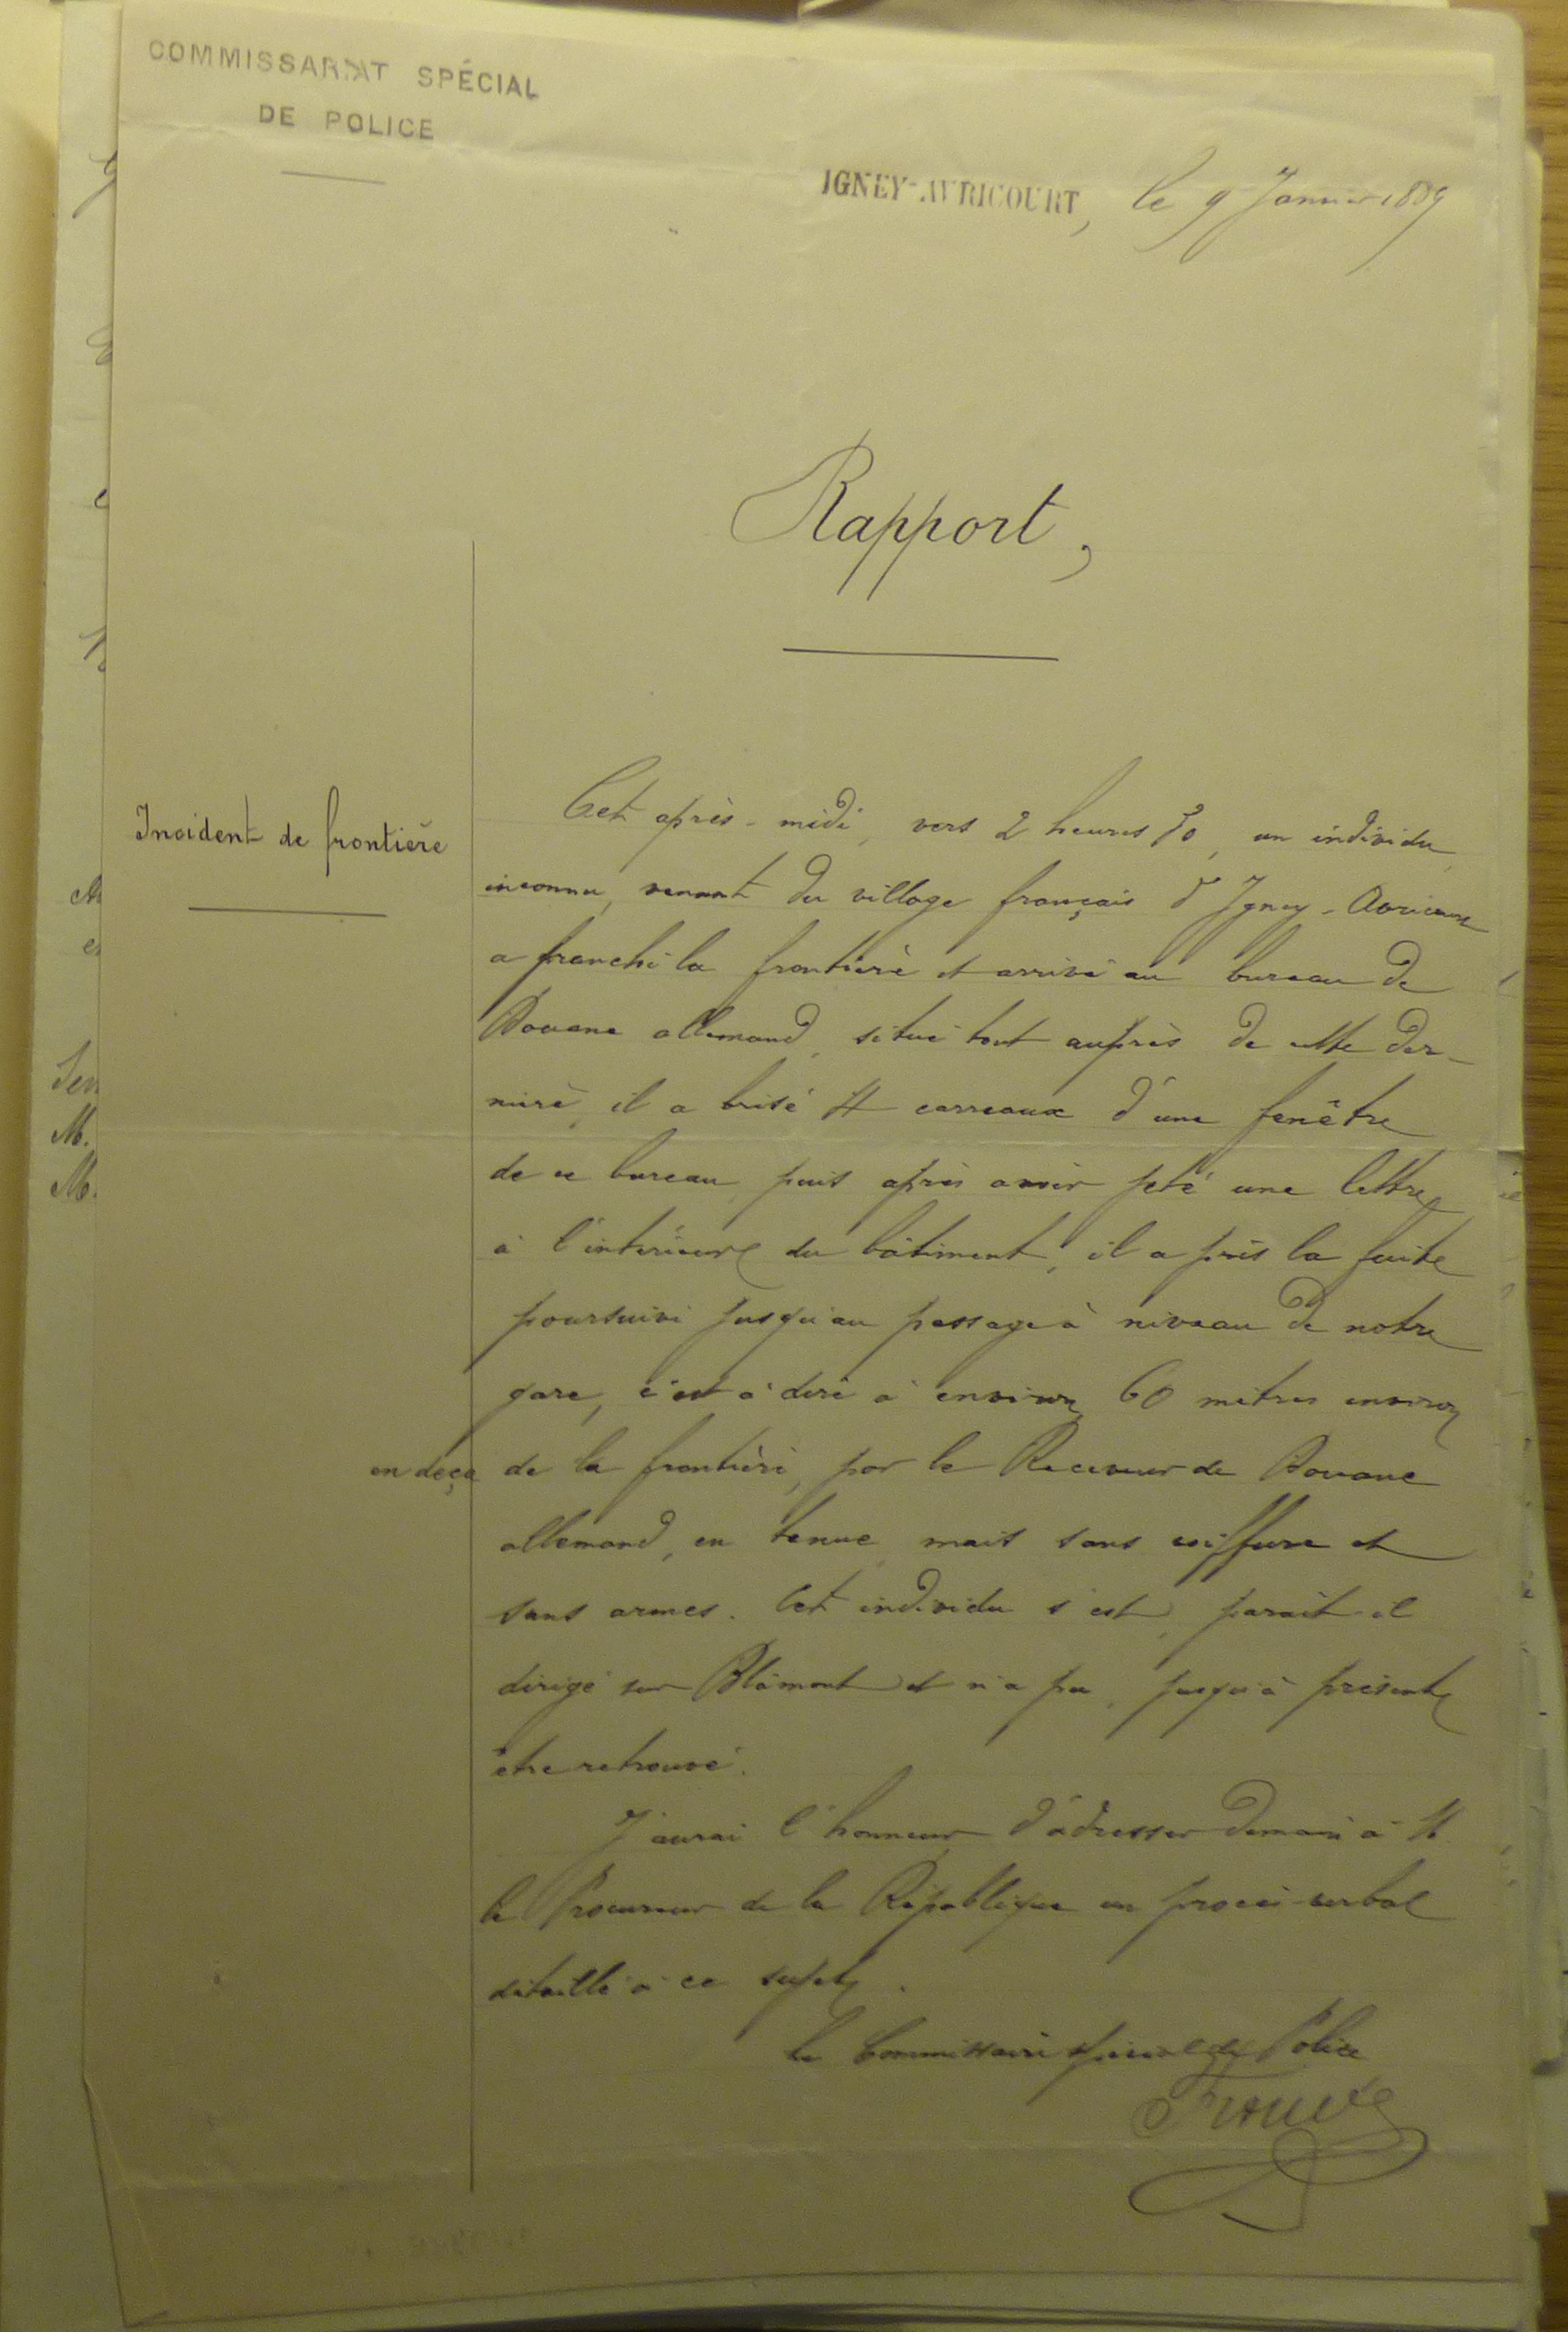 COMMISSARIAT SPÉCIAL
DE POLICE
IGNEY-AVRICOURT, le 9 Janvier 1889
Rapport,
Incident de frontière
Cet après-midi, vers 2 heures 50, un individu
inconnu, venant du village français d'Igney-Avricourt
a franchi la frontière et arrivé au bureau de
Douane allemand, situé tout auprès de cette der-
nière, il a brisé 4 carreaux d'une fenêtre
de ce bureau, puis après avoir jeté une lettre
à l'intérieur du bâtiment, il a pris la fuite
poursuivi jusqu'au passage à niveau de notre
gare, c'est à dire à environ 60 mètres environ
en deçà de la frontière, par le Receveur de Douane
allemand, en tenue, mais sans coiffure et
sans armes. Cet individu s'est, paraît-il
dirigé sur Blâmont et n'a pu, jusqu'à présent
être retrouvé.
J'aurai l'honneur d'adresser demain à M
le Procureur de la République un procès-verbal
détaillé à ce sujet.
Le Commissaire spécial de Police